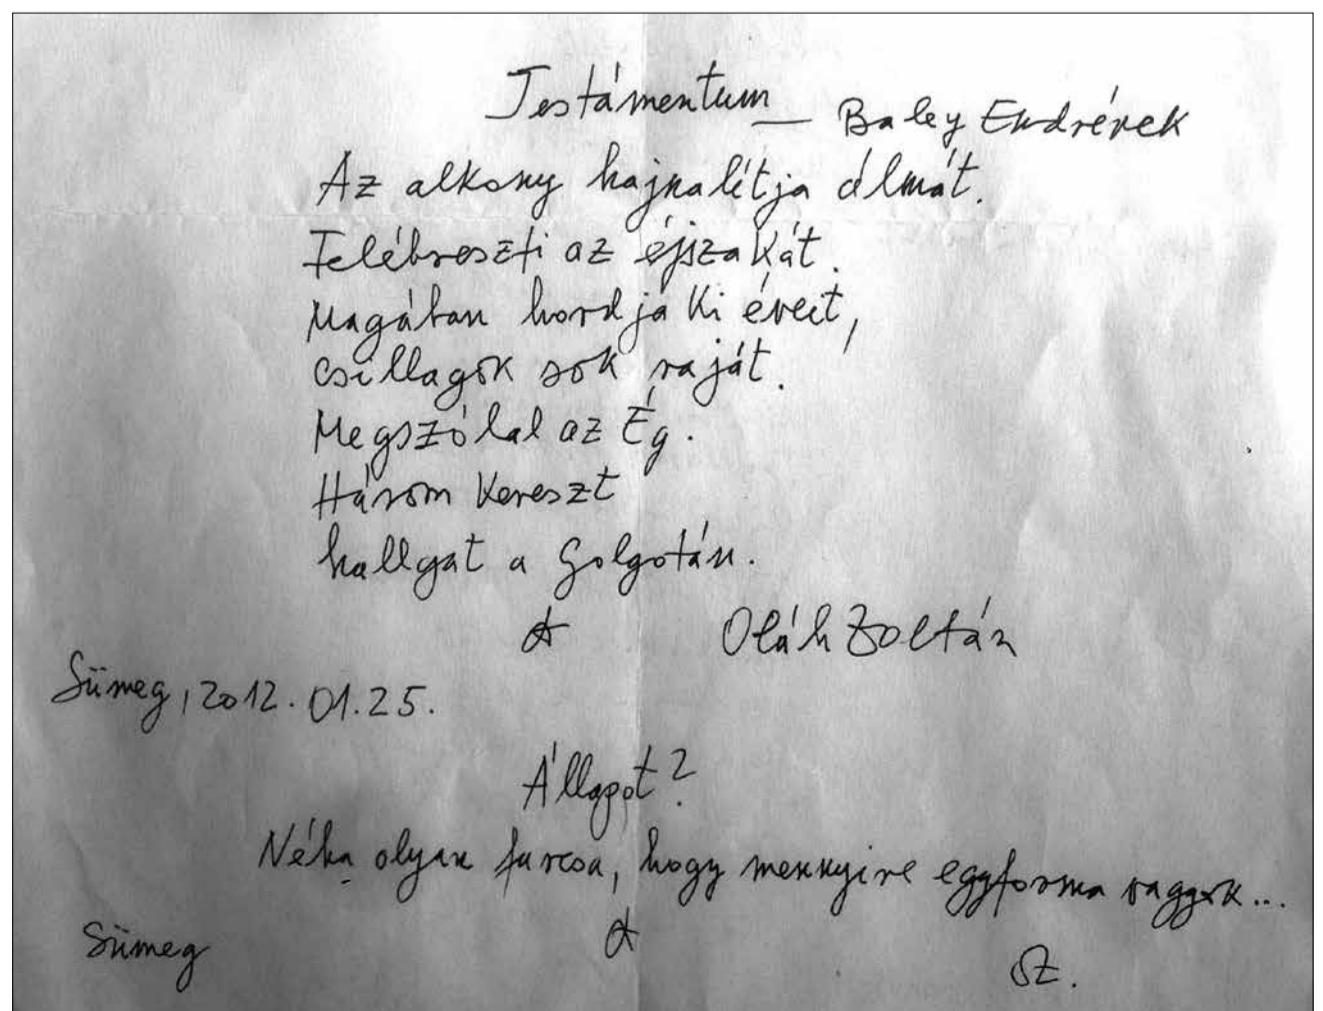 Testámentum — Baley Endrének
Az alkony hajnalítja álmát.
Felébreszti az éjszakát.
Magában hordja ki éveit,
csillagok sok raját.
Megszólal az Ég.
Három kereszt
hallgat a Golgotán.
Oláh Zoltán
Sümeg, 2012. 01. 25.
Állapot?
Néha olyan furcsa, hogy mennyire egyforma vagyok...
Sümeg